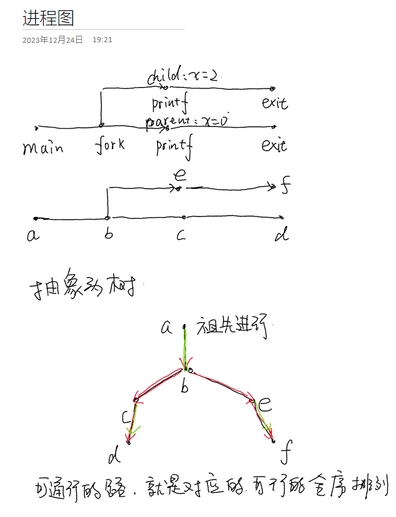 进程图
2023年12月24日 19:21
child:x=2
printf exit
parent:x=0
main fork printf exit
e f
a b c d
抽象为树
a 祖先进行
b
c e
d f
可通行的路，就是对应的可行的全序排列